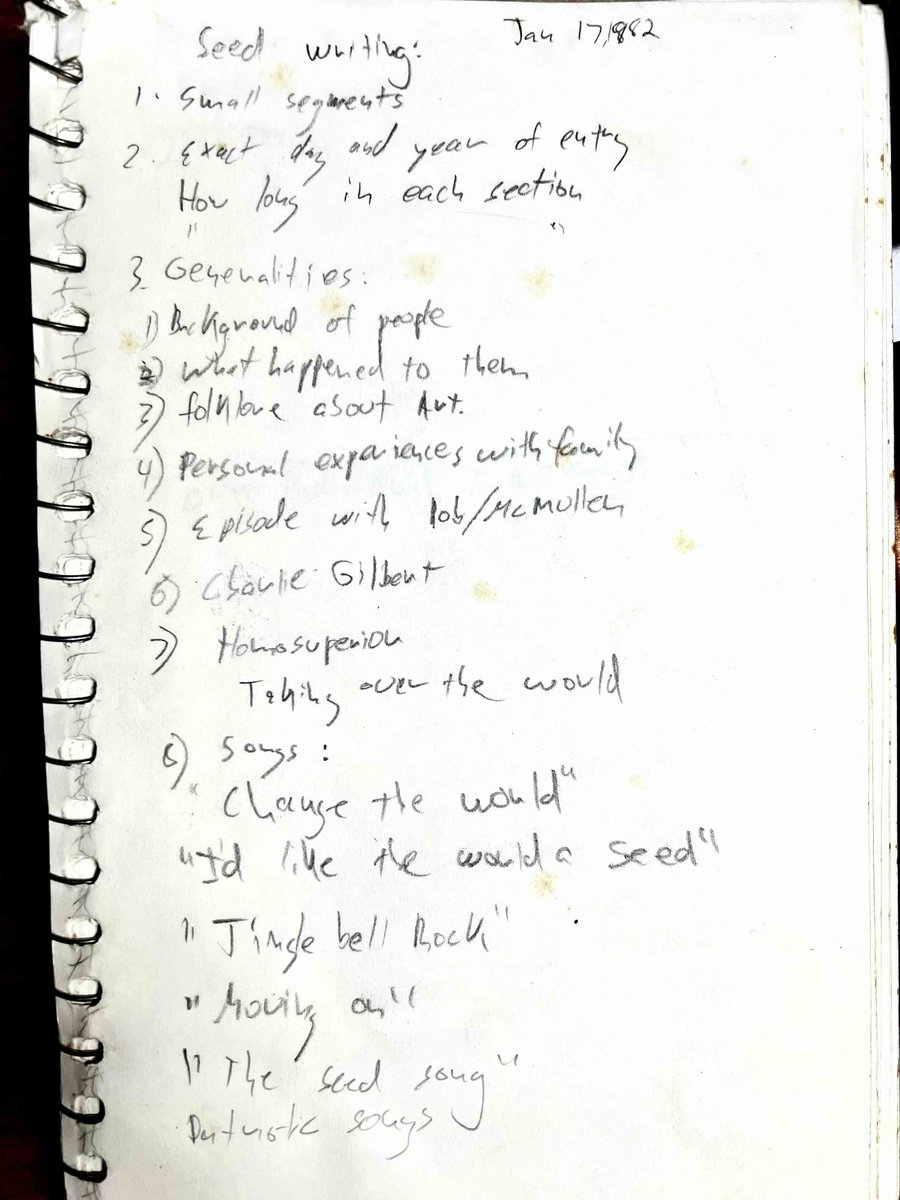 Seed writing: Jan 17, 1982
1. Small segments
2. Exact day and year of entry
How long in each section
" "
3. Generalities:
1) Background of people
2) What happened to them
3) folklore about Art.
4) Personal experiences with family
5) Episode with Bob/McMullen
6) Charlie Gilbert
7) Homosuperior
Taking over the world
8) Songs:
"Change the world"
"I'd like the world a Seed"
"Jingle bell Rock"
"Moving on"
"The seed song"
Patriotic songs